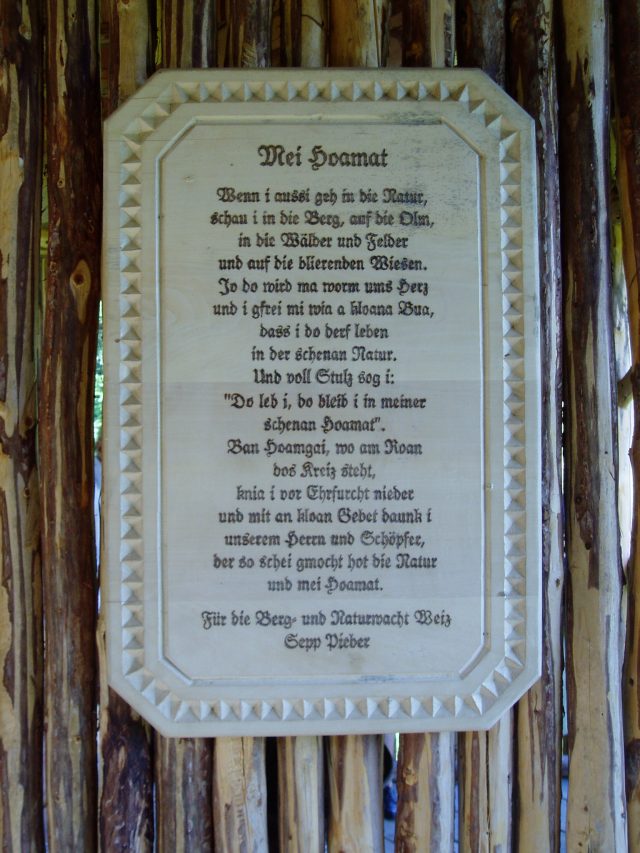 Mei Hoamat
Wenn i aussi geh in die Natur,
schau i in die Berg, auf die Olm,
in die Wälder und Felder
und auf die blierenden Wiesen.
Jo do wird ma worm ums Herz
und i gfrei mi wia a kloana Bua,
dass i do derf leben
in der schenan Natur.
Und voll Stulz sog i:
"Do leb i, do bleib i in meiner
schenan Hoamat".
Ban Hoamgai, wo am Roan
dos Kreiz steht,
knia i vor Ehrfurcht nieder
und mit an kloan Gebet daunk i
unserem Herrn und Schöpfer,
der so schei gmocht hot die Natur
und mei Hoamat.
Für die Berg- und Naturwacht Weiz
Sepp Pieber